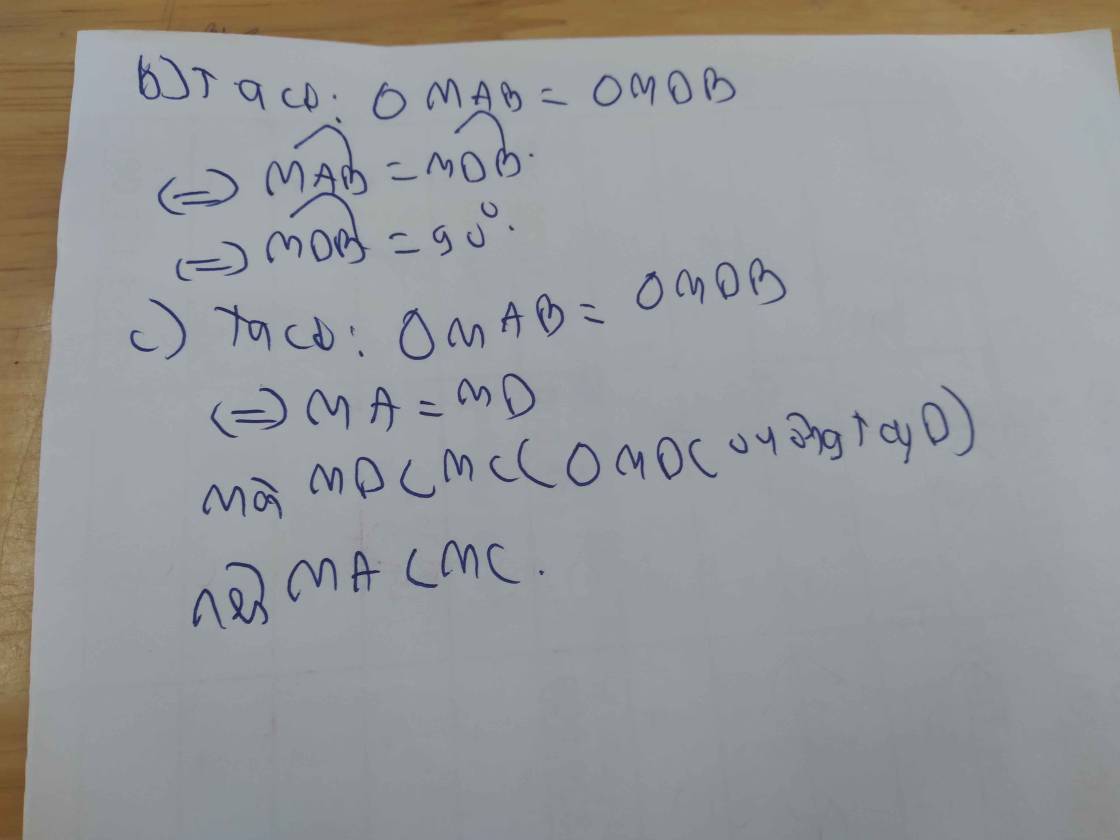 b) Ta có: Δ MAB = Δ MDB
<=> \widehat{MAB} = \widehat{MDB}.
<=> \widehat{MDB} = 90°.
c) Ta có: Δ MAB = Δ MDB
<=> MA = MD
mà MD < MC (Δ MDC vuông tại D)
nên MA < MC.